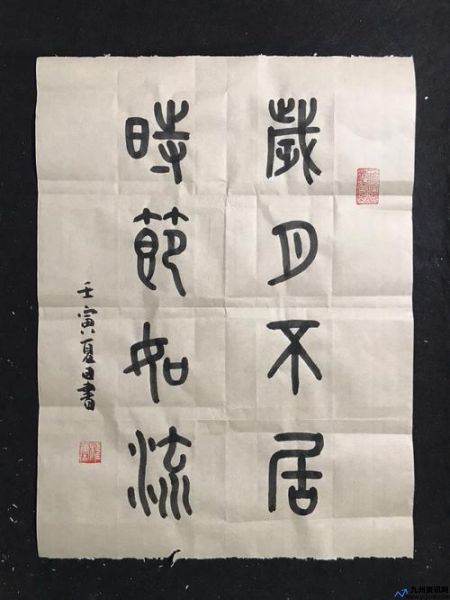 歲月不居
時節如流
壬寅夏日書
九州资讯网